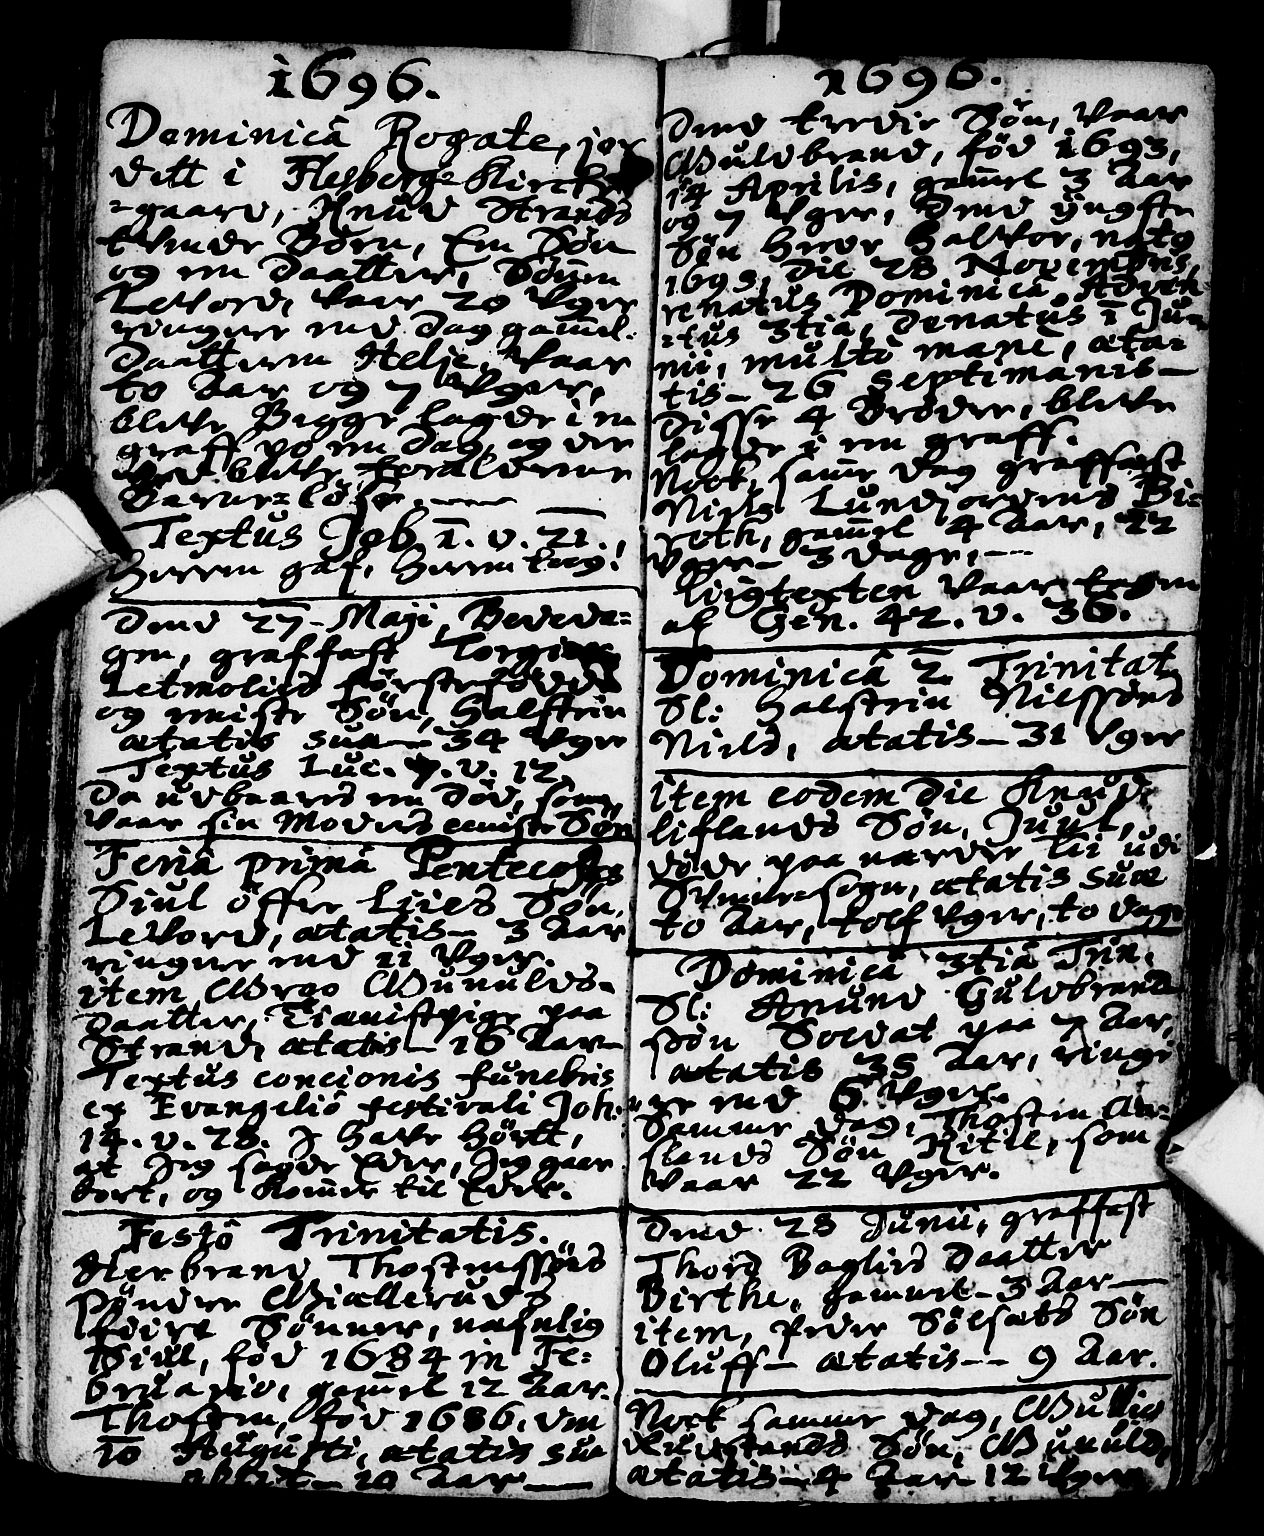 1696.
Dominicâ Rogate, jor
dett i Flesberge Kirche
=gaard, Knud Strands
tvende Börn, Em Sön
og en Daatter, Sönnen
Levord, vaar 20 Vger
ringere end dag gam̄el.
Daatteren Helje, vaar
to Aar og 7 Vger,
bleve Begge lagde i en
graff po en dag, og der
ved bleve foralderne
Barne=löse.
Textus Job 1. v. 21.,
Herren gaf, Herren tog.
Dend 27 Maji, Bededa=
gen, graffast Torgier
Letmolies förstefödde
og eniste Sön, Halstein
ætatis suæ 34 Vger
Textus Luc. 7. v. 12.
Da udbaares en död, som
vaar sin Moders eeniste Sön
Feriâ primâ Pentecostes
Siul öffre Liies Sön,
Levord, ætatis 3 Aar
ringere end 11 Vger.
item Groo Gunulds=
daatter, Tienistpige paa
Strand, ætatis 16 Aar
Textus concionis funebris
ex Evangeliô festivali Joh:
14. v. 28. I have hört,
at Jeg sagde Eder, Jeg gaar
bort, og kom̄er til Eder.
Festô Trinitatis.
Herbrand Thostenssöns
Sönder Giælleruds
fiire Sönner, nafnlig
Siul, föd 1684 in Fe=
bruario, gam̄el 12 Aar.
Thosten, föd 1686. den
10 Augusti, ætatis suæ
10 Aar
1696.
Dend tredie Sön, vaar
Guldbrand, föd 1693,
14 Aprilis, gam̄el 3 Aar
og 7 Vger, Dend yngste
Sön Heder Halvor, natus
1695, die 28 Novembris,
renatus Dominicâ Adven=
=tus 3tiâ, denatus 1 Ju=
nii, multô mane, æta=
tis 26 Septimanis
Disse 4 Bröder, bleve
lagde i en graff.
Nock, sam̄e dag graffæst
Niels Lundjordens Bi=
roth, gam̄el 4 Aar, 22
Vger 3 dage,
Liigtexten vaar tagen
af Gen. 42. v. 36.
Dominicâ 2. Trinitat
Sl: Halstein Nilssöns
Niels, ætatis 31 Vger
item eodem die Knud
Liflands Sön, Juul,
döde paa nærder Lii udi
Svenne sogn, ætatis suæ
to Aar, tolf Vger, to dage
Dominicâ 3tiâ Trin.
Sl: Anund Guldbrand
ssön Soldat paa 7 Aar,
ætatis 35 Aar, ringe
re end 6 Vger.
Samme dag, Thosten
slands Sön Kitil, som
vaar 22 Vger.
Dend 28 Junii, graffast
Thord Baglies Daatter
Birthe, gamel 3 Aar
item, Peder Sölsats Sön
Oluff ætatis 9 Aar.
Nock samme dag, Gullic
Sön, Gunuld,
ætatis 4 Aar 12 Vger